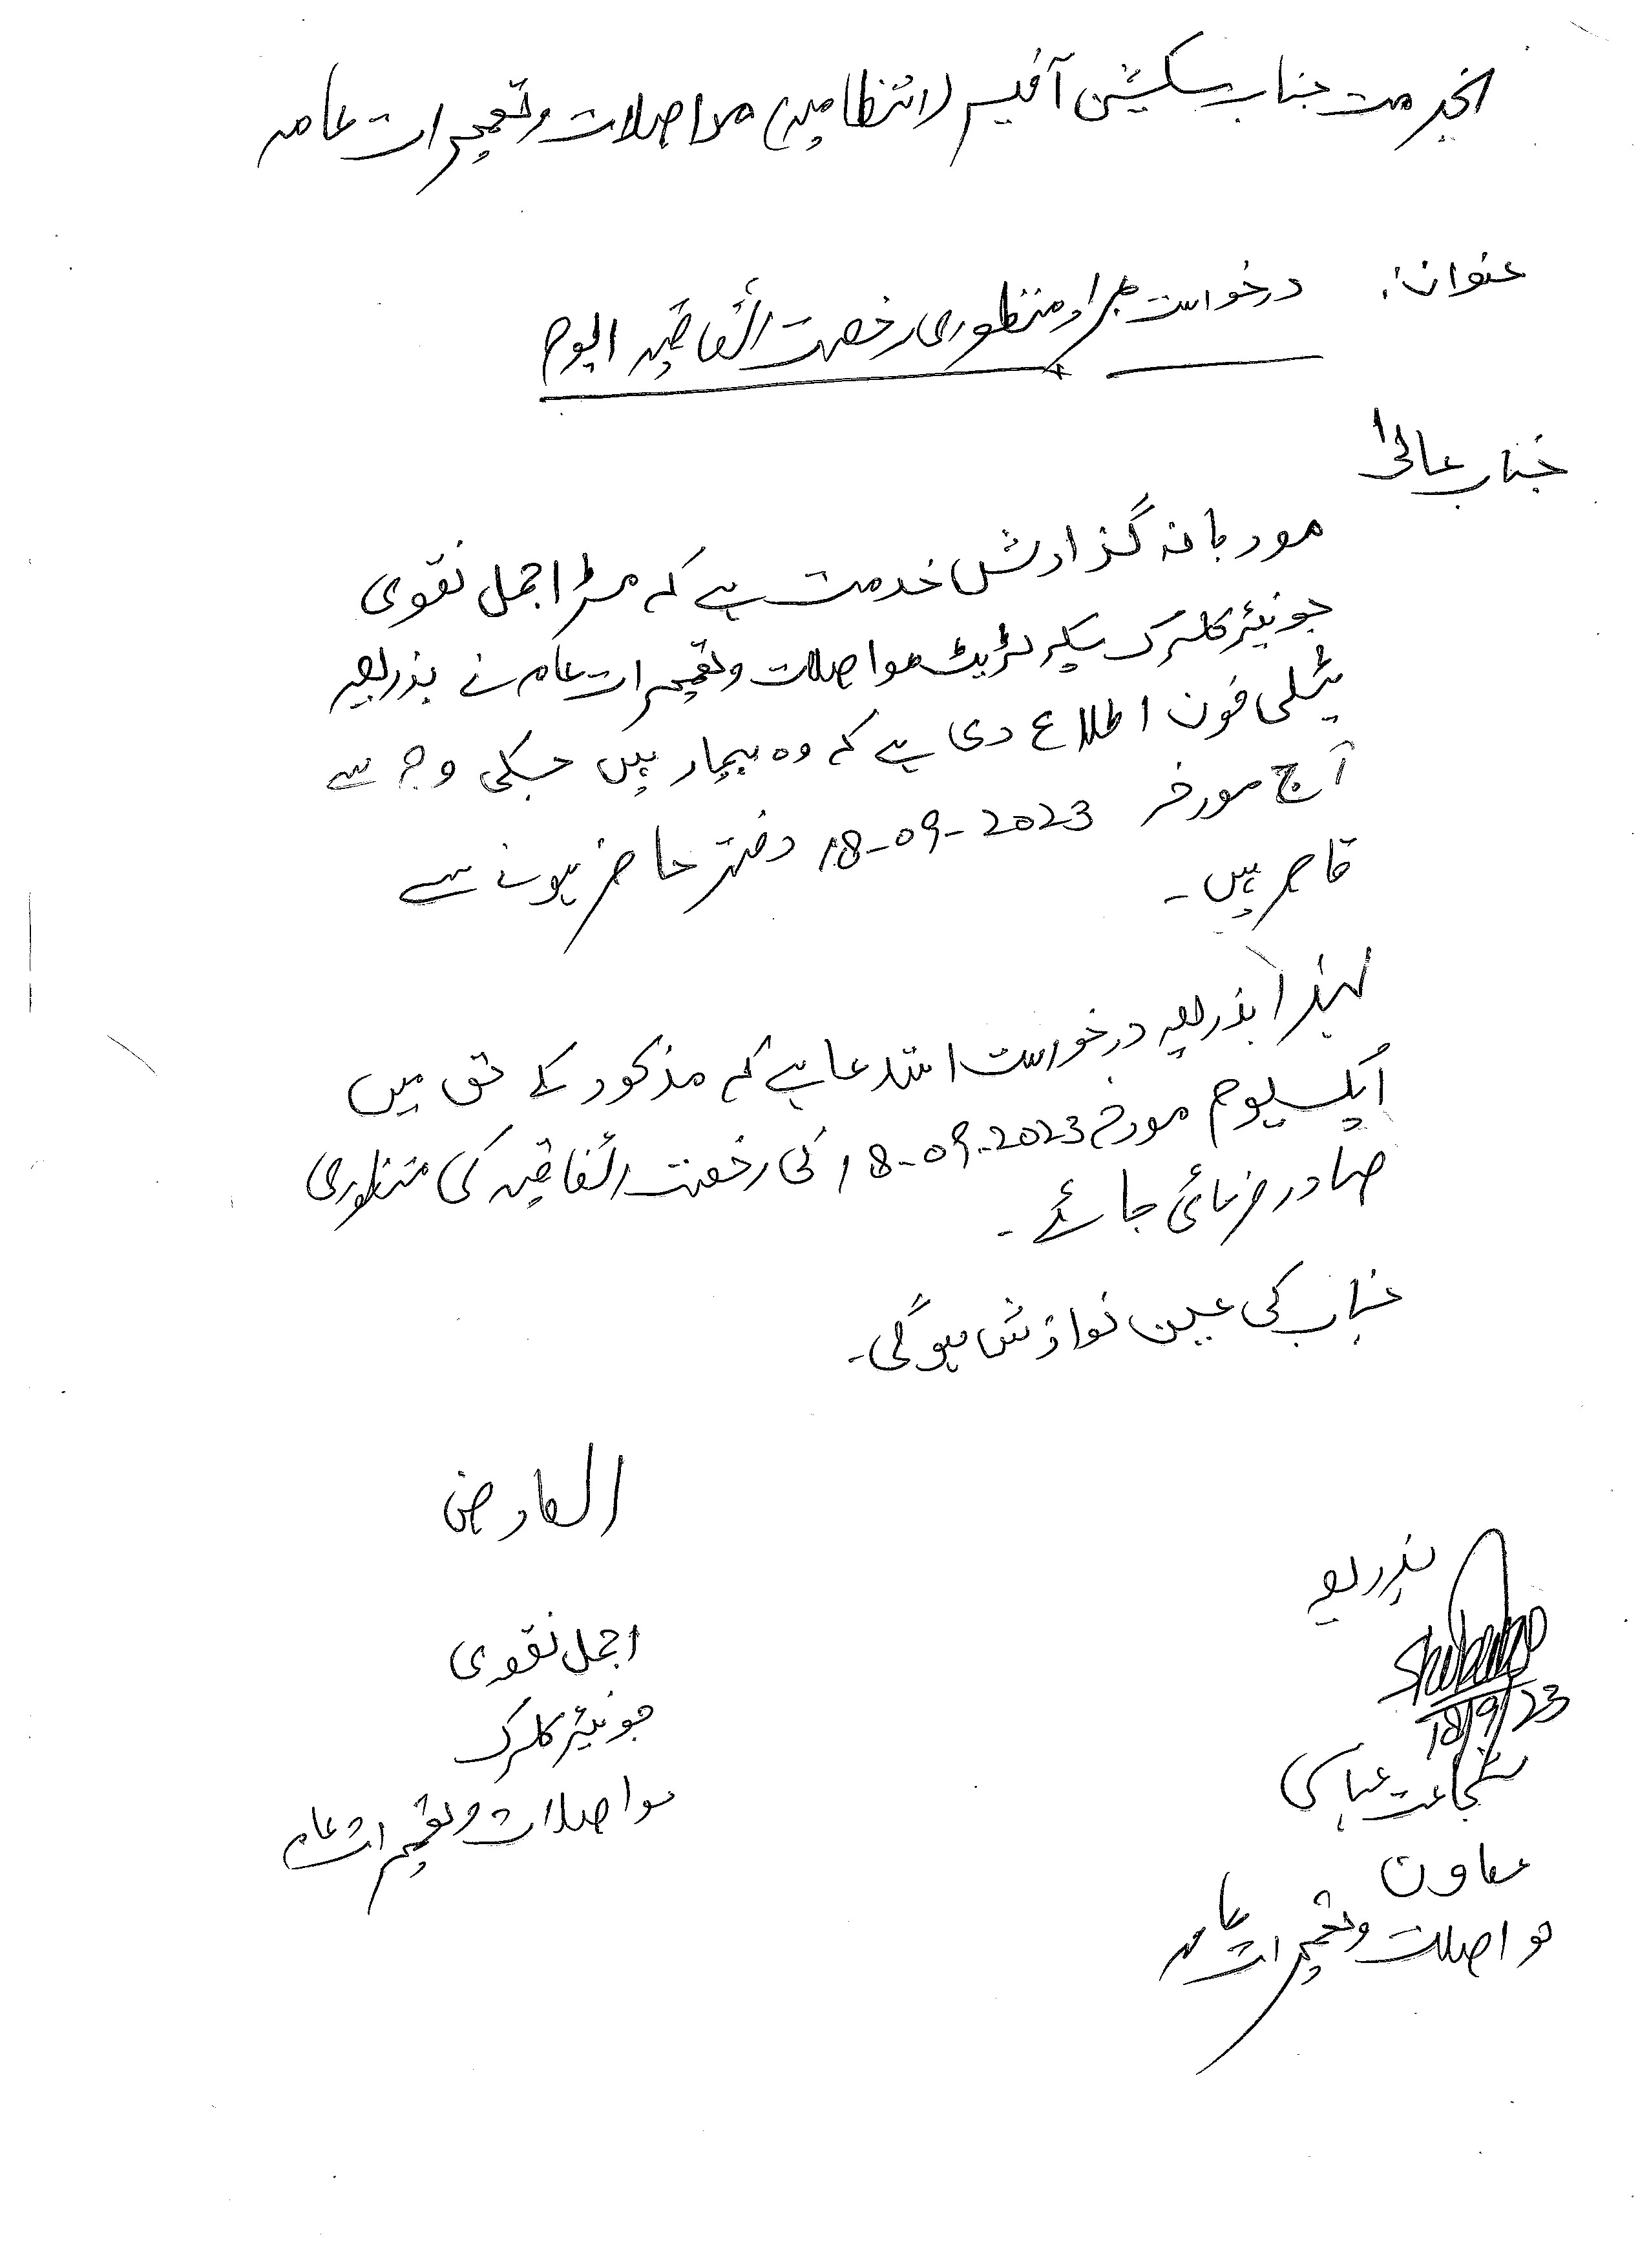 بخدمت جناب سیکشن آفیسر (انتظامیہ) مواصلات و تعمیرات عامہ
عنوان: درخواست بمراد منظوری رخصت اتفاقیہ الیوم
جناب عالیٰ
مودبانہ گذارش خدمت ہے کہ مسٹر اجمل نقوی
جونیئر کلرک سیکرٹریٹ مواصلات و تعمیرات عامہ نے بذریعہ
ٹیلی فون اطلاع دی ہے کہ وہ بیمار ہیں جسکی وجہ سے
آج مورخہ 18-09-2023 دفتر حاضر ہونے سے
قاصر ہیں۔
لہذا بذریعہ درخواست استدعا ہے کہ مذکور کے حق میں
ایک یوم مورخہ 18-09-2023 کی رخصت اتفاقیہ کی منظوری
صادر فرمائی جائے۔
جناب کی عین نوازش ہوگی۔
العارض
اجمل نقوی
جونیئر کلرک
مواصلات و تعمیرات عامہ
بذریعہ
18/9/23
شجاعت عباسی
معاون
مواصلات و تعمیرات عامہ